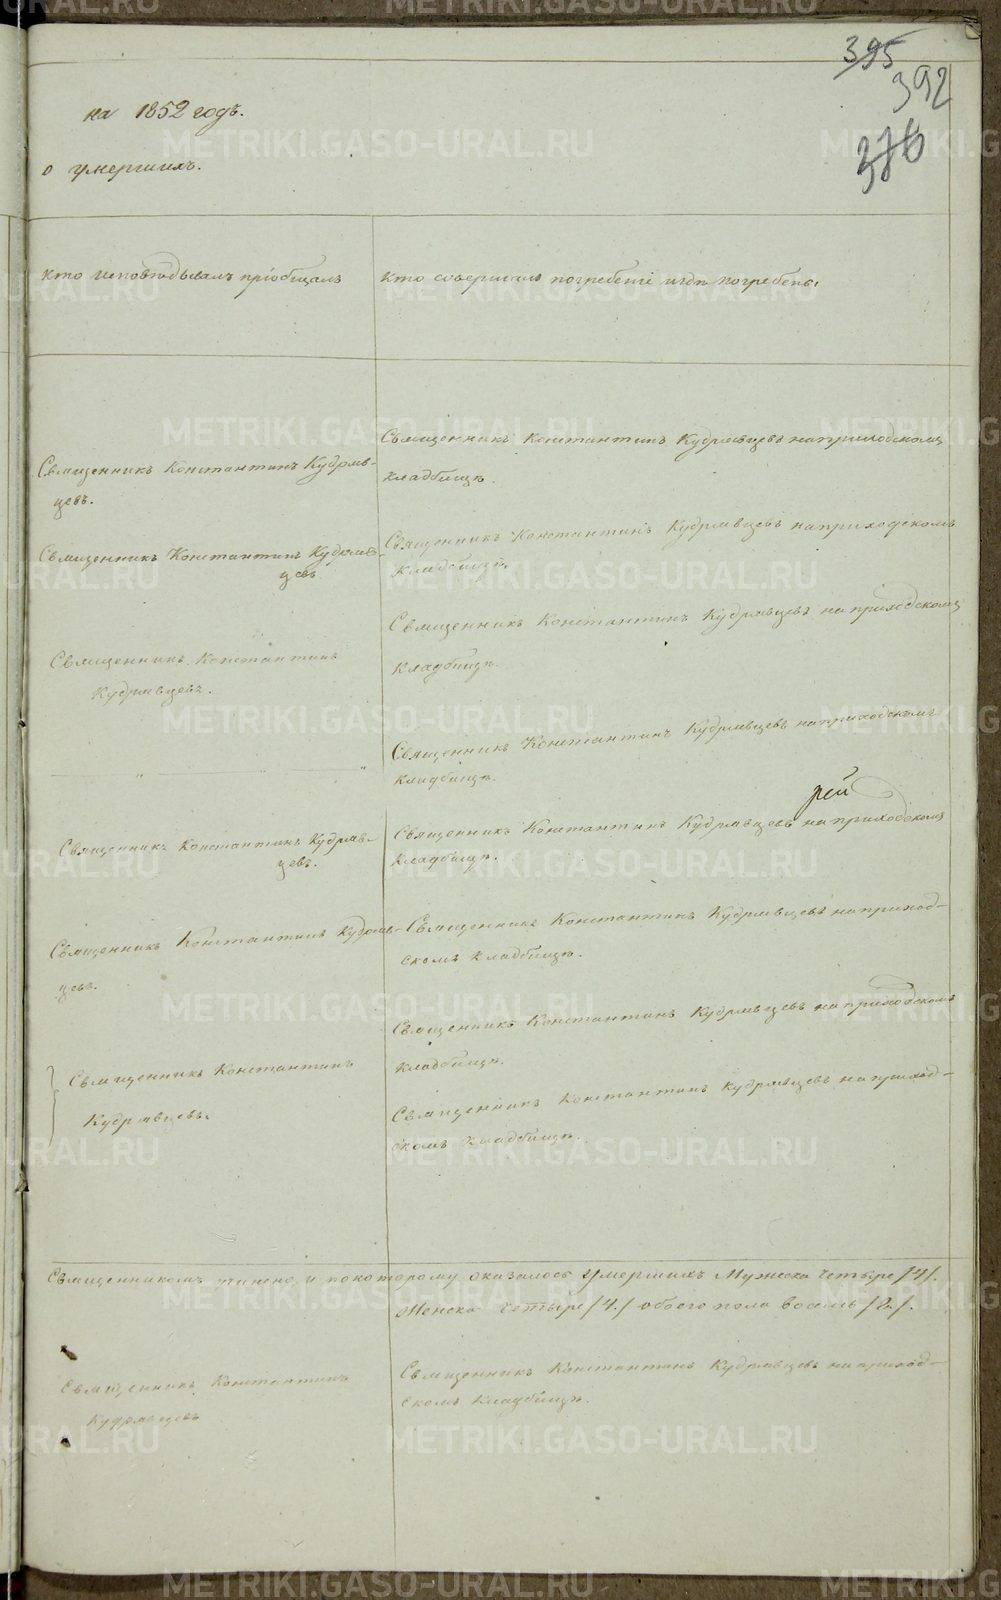 395
392
376
на 1852 годъ.
о умершихъ.
кто исповѣдывалъ пріобщалъ
кто совершалъ погребеніе и гдѣ погребены
Священникъ Константинъ Кудряв-
цевъ.
Священникъ Константинъ Кудрявцевъ на приходскомъ
кладбищѣ.
Священникъ Константинъ Кудряв-
цевъ
Священникъ Константинъ Кудрявцевъ на приходскомъ
кладбищѣ.
Священникъ Константинъ
Кудрявцевъ.
Священникъ Константинъ Кудрявцевъ на приходскомъ
кладбищѣ.
Священникъ Константинъ Кудрявцевъ на приходскомъ
кладбищѣ.
рей
Священникъ Константинъ Кудряв-
цевъ.
Священникъ Константинъ Кудрявцевъ на приходскомъ
кладбищѣ.
Священникъ Константинъ Кудряв-
цевъ.
Священникъ Константинъ Кудрявцевъ на приход-
скомъ кладбищѣ.
Священникъ Константинъ
Кудрявцевъ.
Священникъ Константинъ Кудрявцевъ на приходскомъ
кладбищѣ.
Священникъ Константинъ Кудрявцевъ на приход-
скомъ кладбищѣ.
Священникомъ учинено, и по которому оказалось умершихъ Мужеска четыре /4/.
Женска четыре /4./ обоего пола восемь /8./.
Священникъ Константинъ
Кудрявцевъ
Священникъ Константинъ Кудрявцевъ на приход-
скомъ кладбищѣ.
METRIKI.GASO-URAL.RU